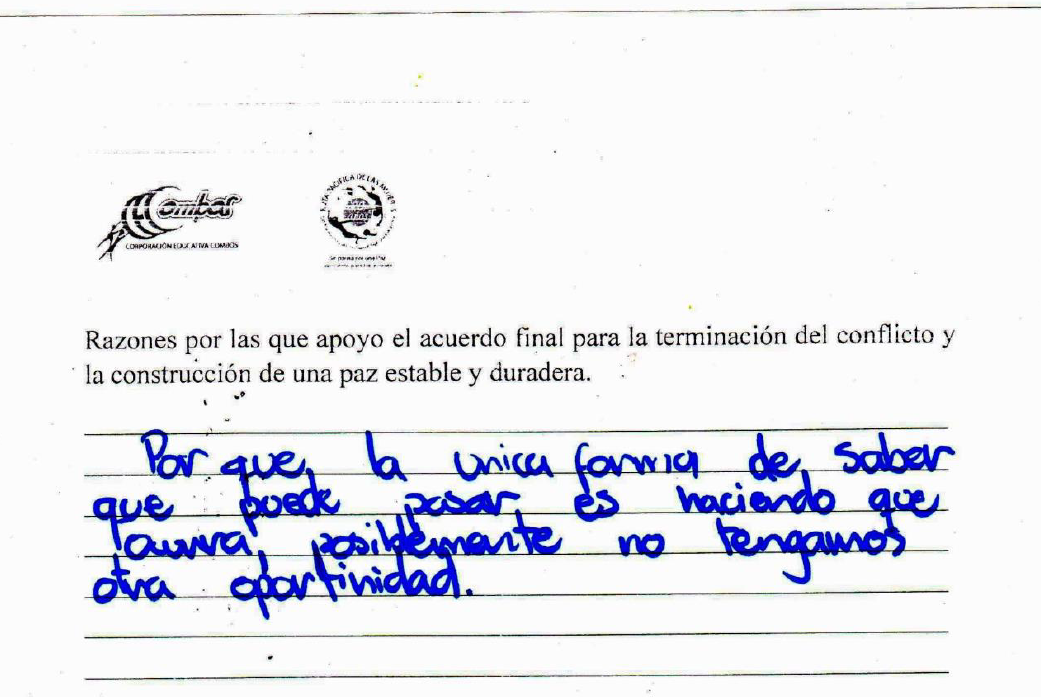 Combos
CORPORACIÓN EDUCATIVA COMBOS
RUTA PACÍFICA DE LAS MUJERES
Razones por las que apoyo el acuerdo final para la terminación del conflicto y
la construcción de una paz estable y duradera.
Por que, la unica forma de, saber
que puede pasar, es haciendo que
ocurra, posiblemente no tengamos
otra oportinidad.